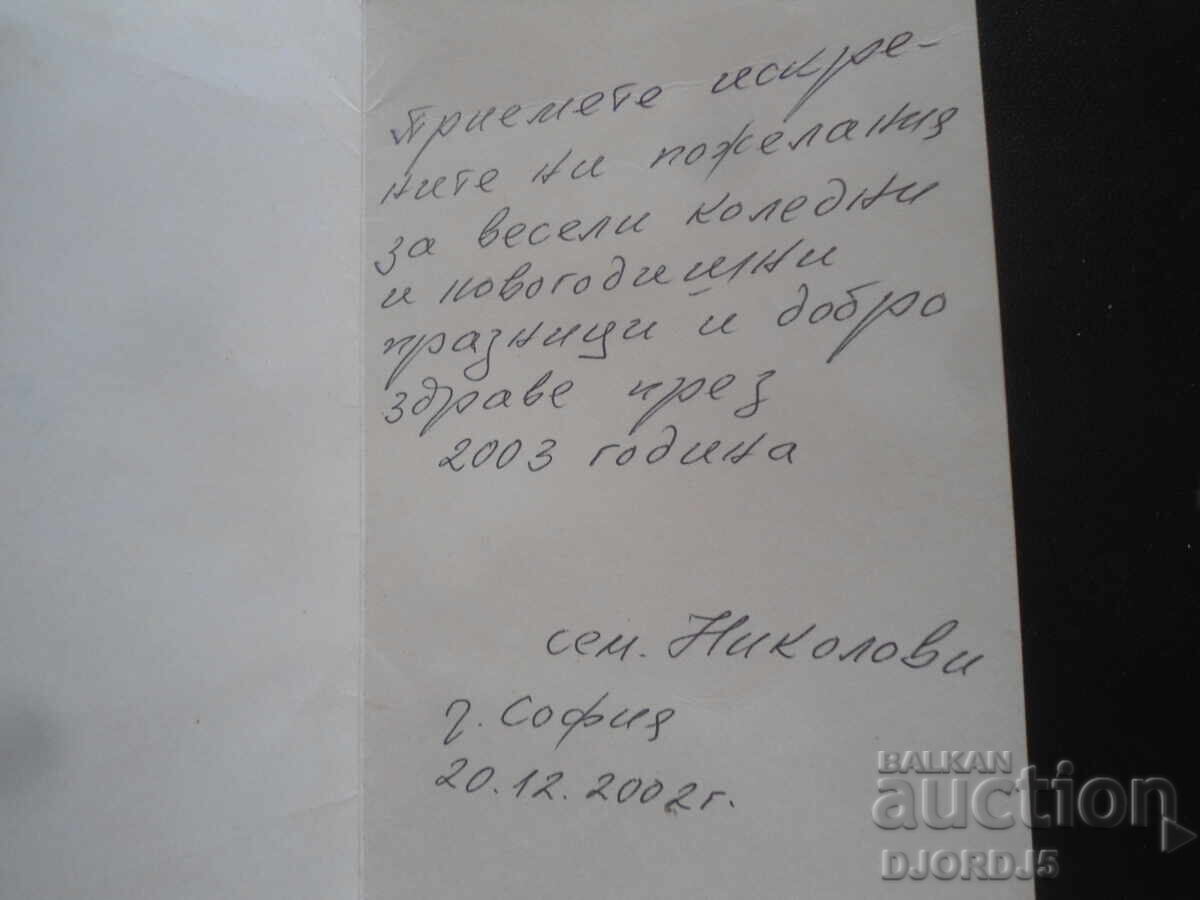 Приемете искре-
ните ни пожелания
за весели коледни
и новогодишни
празници и добро
здраве през
2003 година
сем. Николови
г. София
20.12.2002г.
BALKAN
auction
DJORDJ5